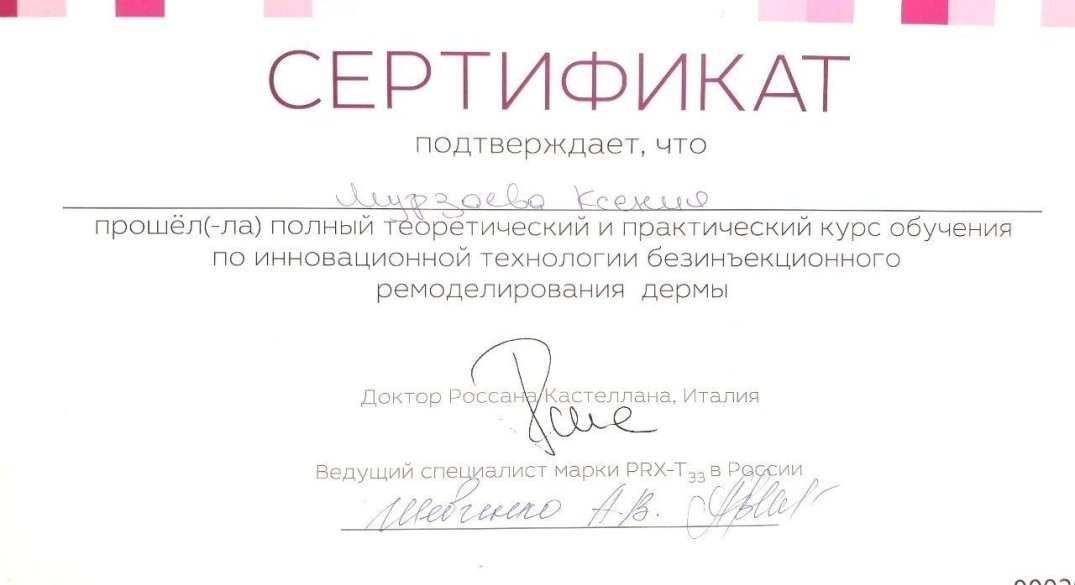 СЕРТИФИКАТ
подтверждает, что
Мурзаева Ксения
прошёл(-ла) полный теоретический и практический курс обучения
по инновационной технологии безинъекционного
ремоделирования дермы
Доктор Россана Кастеллана, Италия
Ведущий специалист марки PRX-T33 в России
А.В.